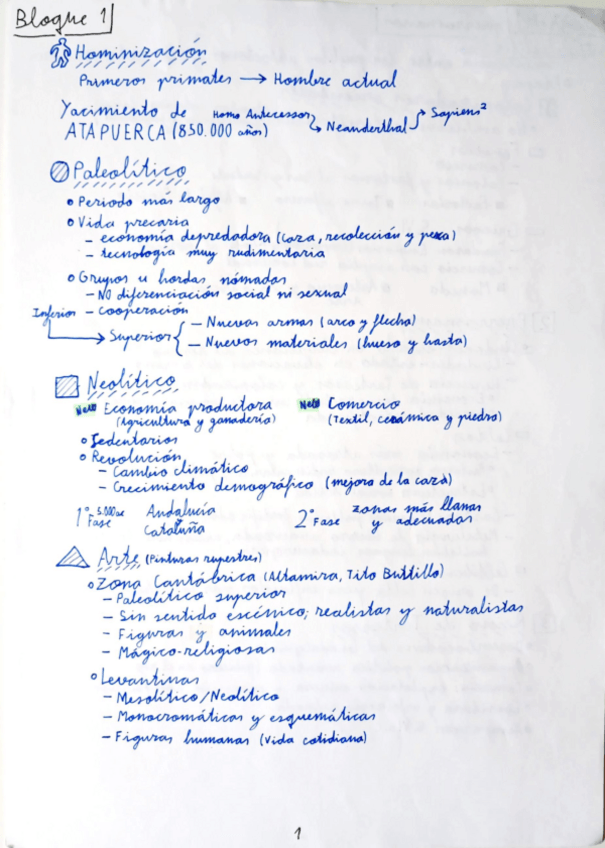 Bloque 1
Hominización
Primeros primates → Hombre actual
Yacimiento de Homo Antecessor ↳ Neanderthal → Sapiens²
ATAPUERCA (850.000 años)
Paleolítico
• Periodo más largo
• Vida precaria
- economía depredadora (caza, recolección y pesca)
- tecnología muy rudimentaria
• Grupos u hordas, nómadas
- NO diferenciación social ni sexual
Inferior - cooperación
→ Superior { - Nuevas armas (arco y flecha)
- Nuevos materiales (hueso y hasta)
Neolítico
New Economía productora New Comercio
(Agricultura y ganadería) (Textil, cerámica y piedra)
• Sedentarios
• Revolución
- Cambio climático
- Crecimiento demográfico (mejora de la caza)
1ª Fase 5.000ac Andalucía y Cataluña 2ª Fase zonas más llanas y adecuadas
Arte (Pinturas rupestres)
• Zona Cantábrica (Altamira, Tito Buttillo)
- Paleolítico superior
- Sin sentido escénico; realistas y naturalistas
- Figuras y animales
- Mágico-religiosas
• Levantinas
- Mesolítico/Neolítico
- Monocromáticas y esquemáticas
- Figuras humanas (Vida cotidiana)
1